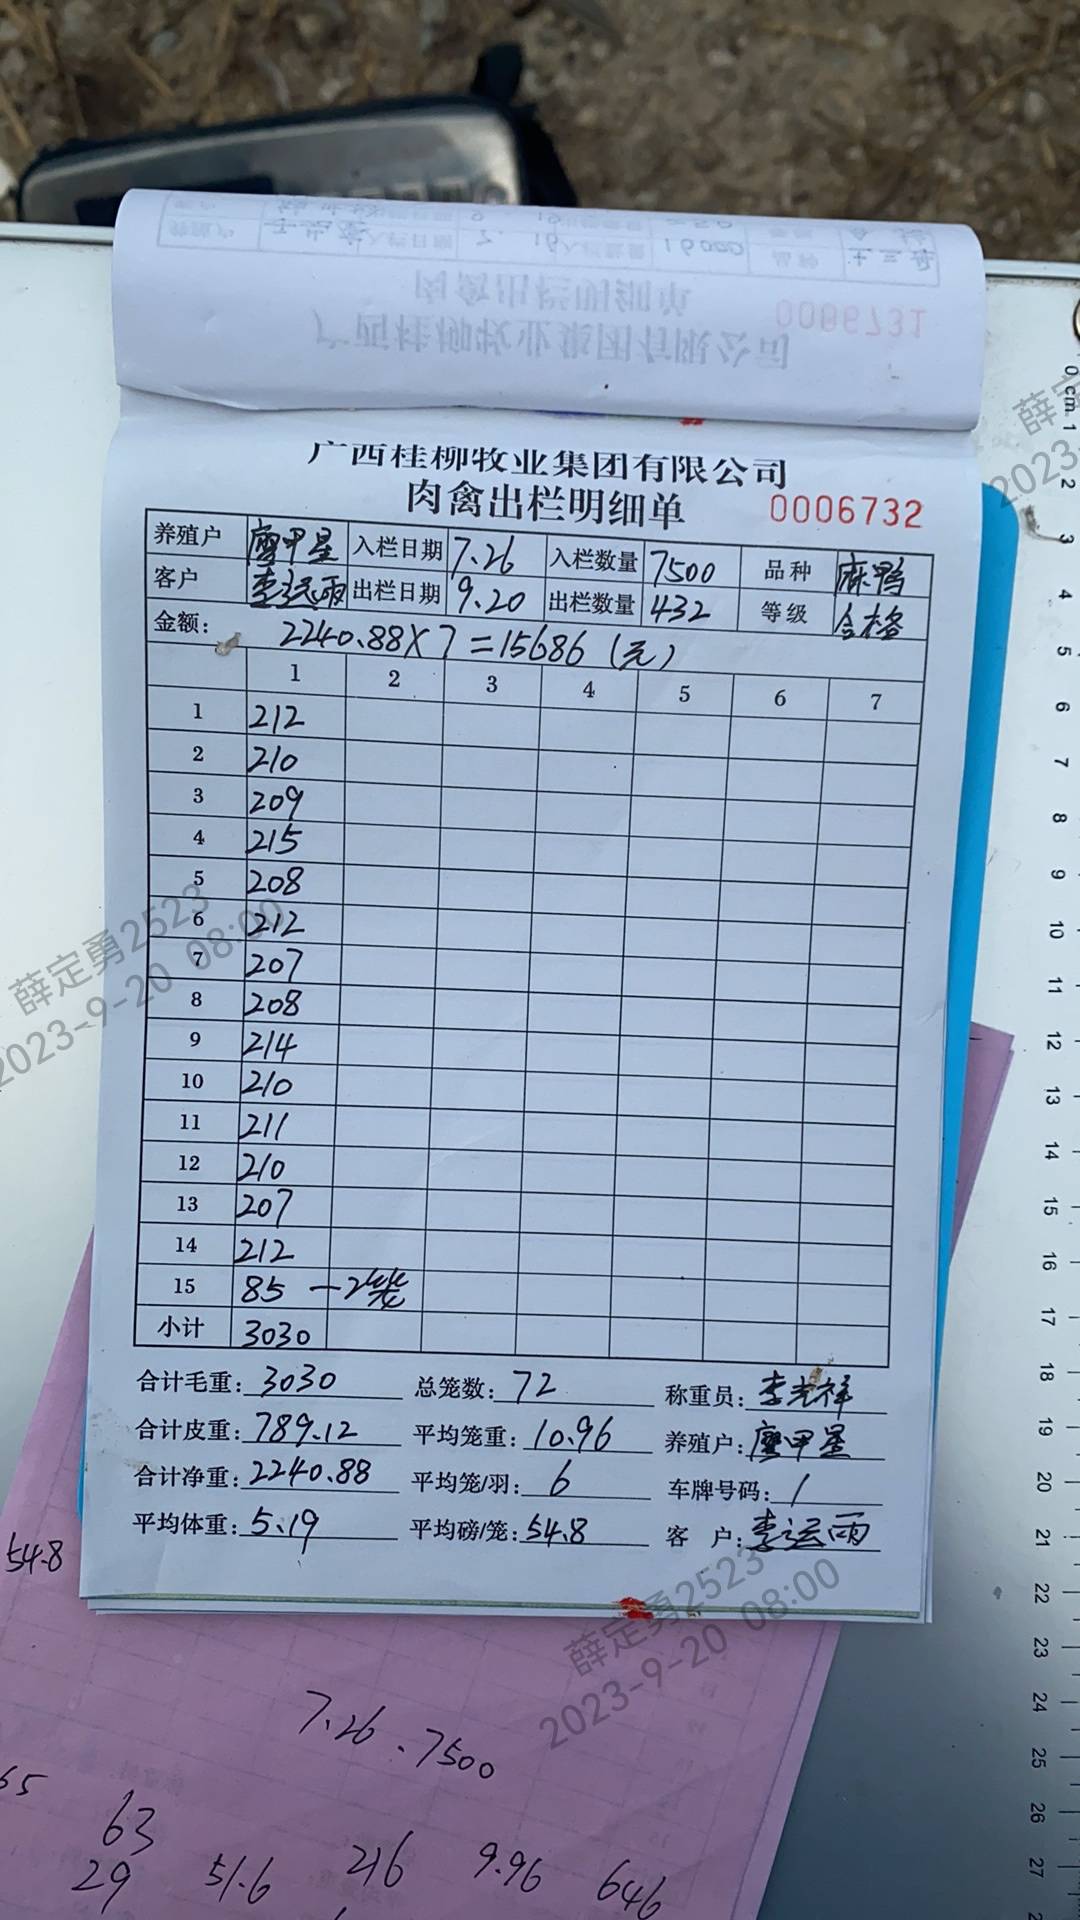 广西桂柳牧业集团有限公司
肉禽出栏明细单 0006732
养殖户 廖甲星 入栏日期 7.26 入栏数量 7500 品种 麻鸭
客户 李运雨 出栏日期 9.20 出栏数量 432 等级 合格
金额: 2240.88×7=15686(元)
1 2 3 4 5 6 7
1 212
2 210
3 209
4 215
5 208
6 212
7 207
8 208
9 214
10 210
11 211
12 210
13 207
14 212
15 85 —2笼
小计 3030
合计毛重: 3030 总笼数: 72 称重员: 李光祥
合计皮重: 789.12 平均笼重: 10.96 养殖户: 廖甲星
合计净重: 2240.88 平均笼/羽: 6 车牌号码: 1
平均体重: 5.19 平均磅/笼: 54.8 客户: 李运雨
54.8
7.26.7500
65
63
29 51.6 216 9.96 646
0 cm 1 2 3 4 5 6 7 8 9 10 11 12 13 14 15 16 17 18 19 20 21 22 23 24 25 26 27
薛定勇2523
2023-9-20 08:00
薛定勇2523
2023-9-20 08:00
薛
2023